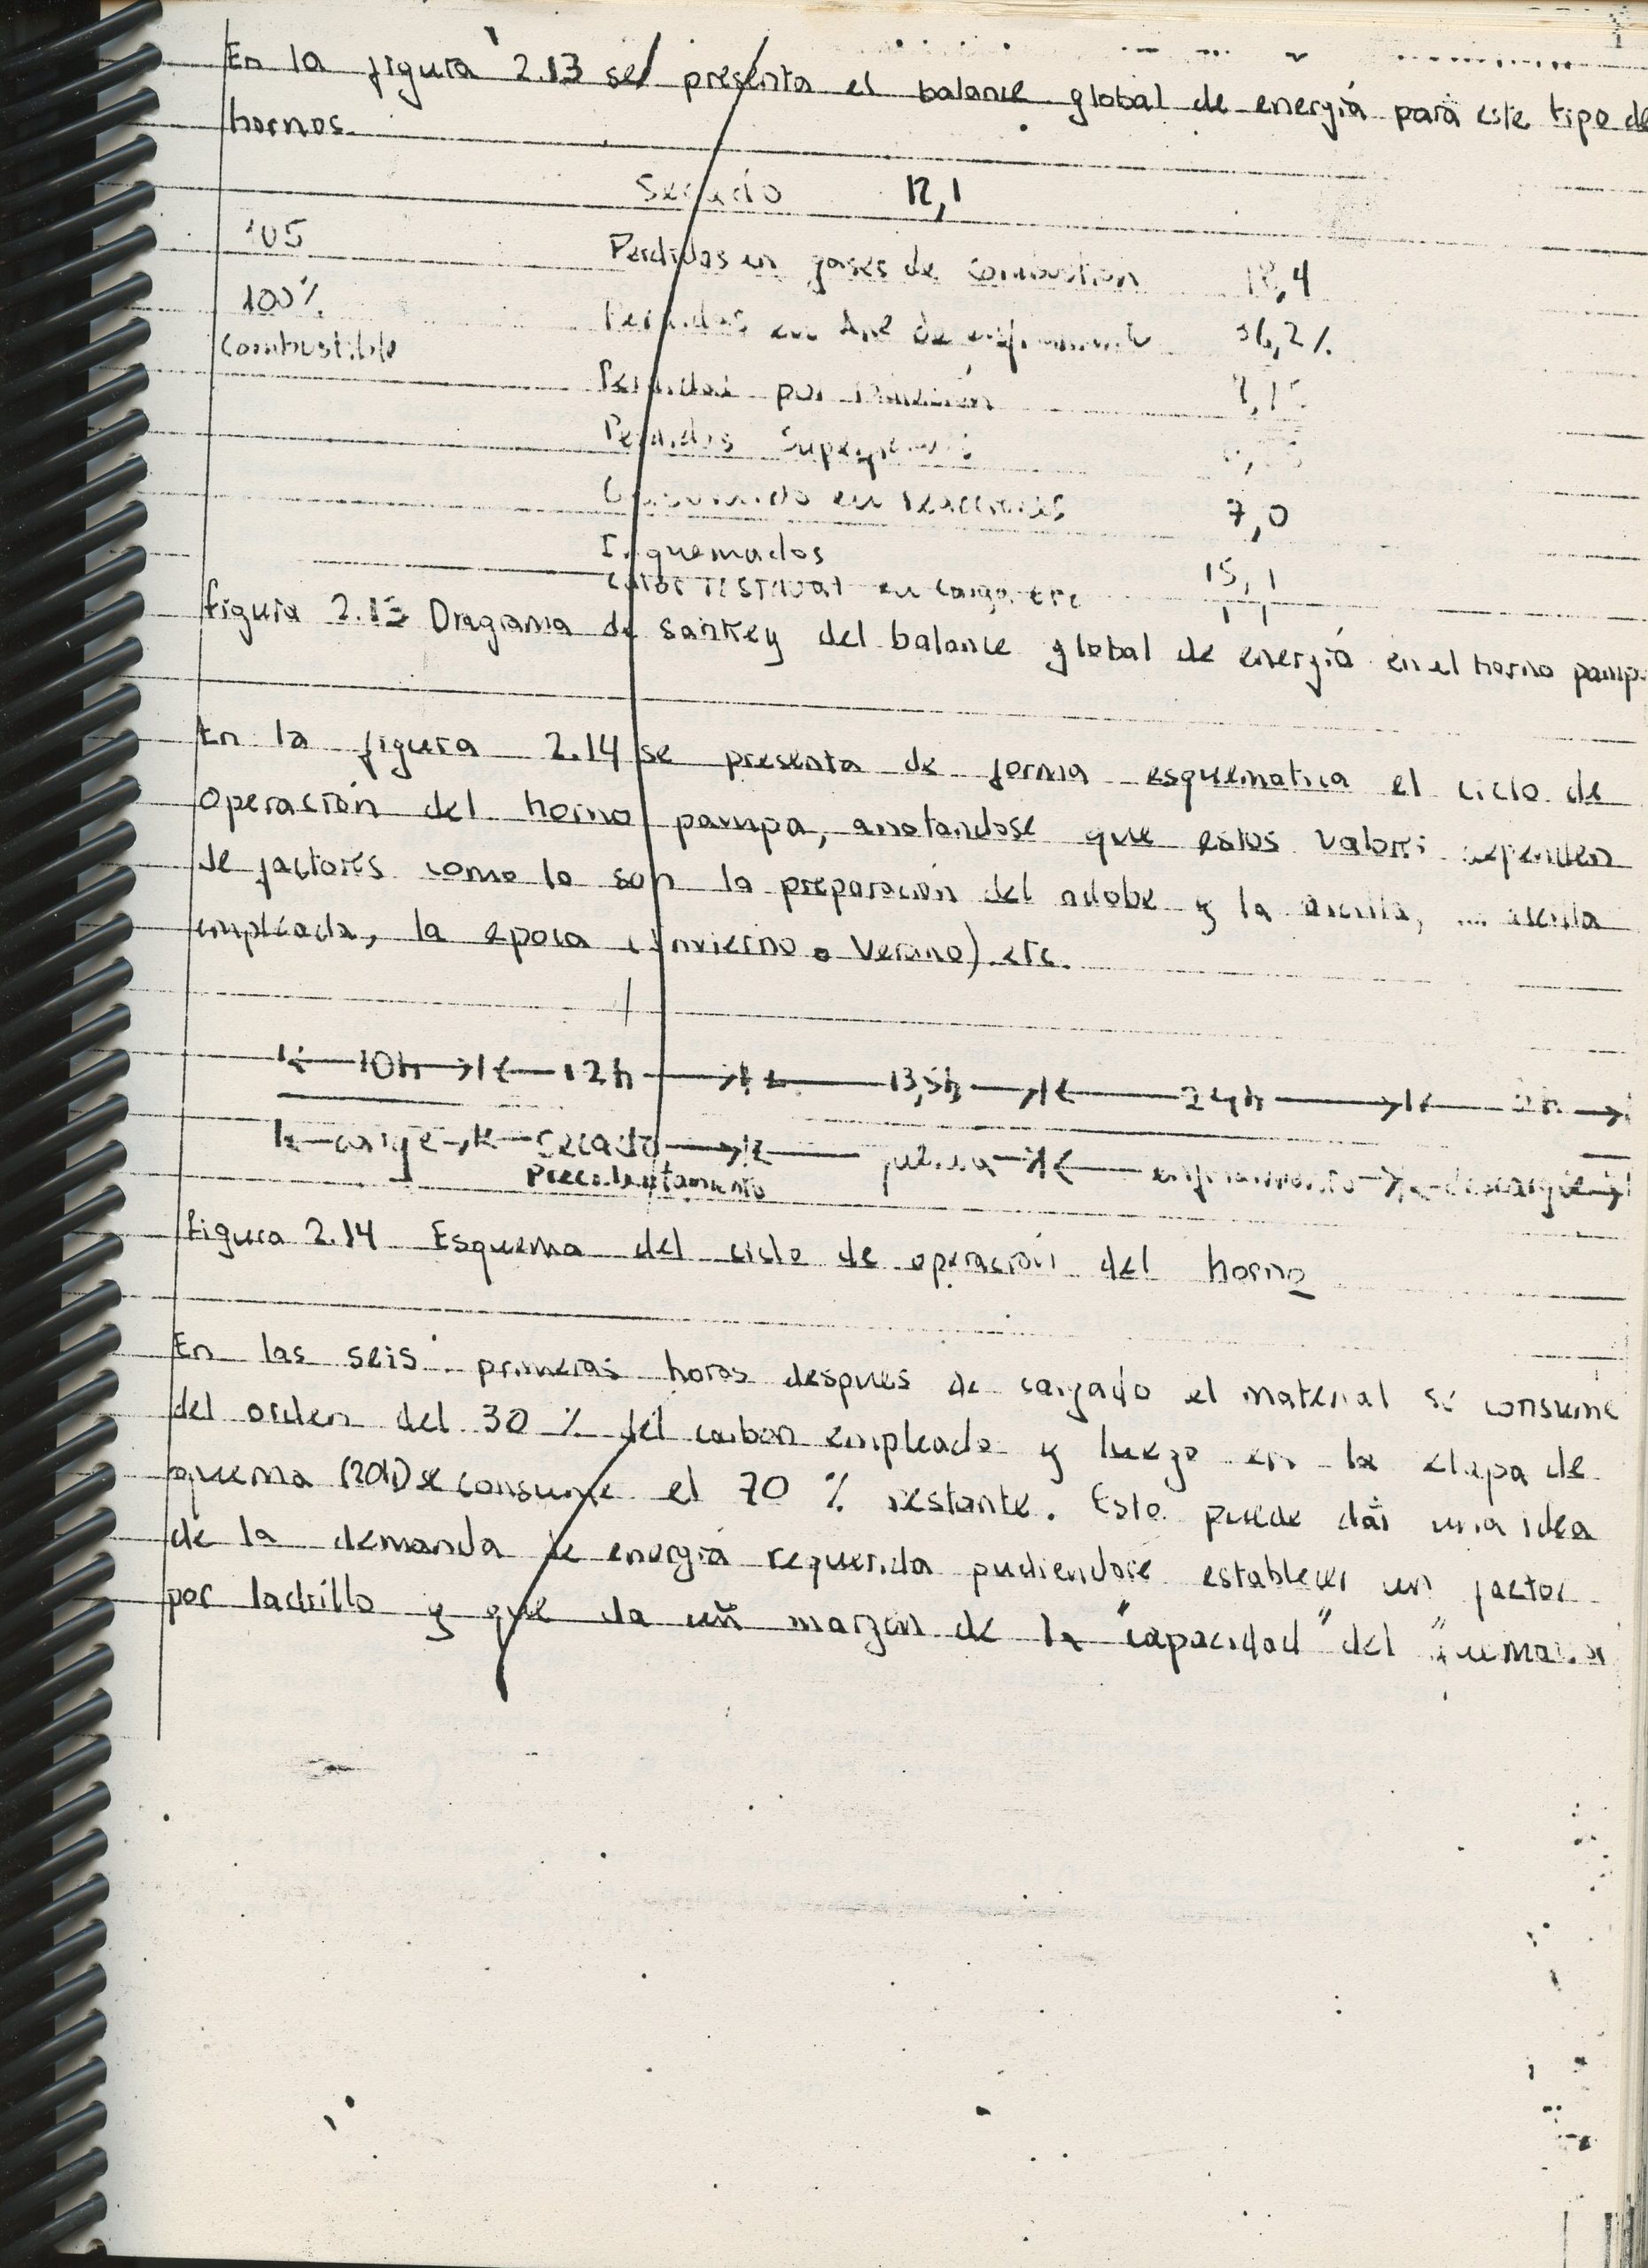 En la figura 2.13 se presenta el balance global de energía para este tipo de
hornos.
Secado 12,1
105
Perdidas en gases de combustion 18,4
100%
Perdidas en de enfriamiento 36,2%
Combustible
Perdidas por
Perdidas
Consumido en reacciones 7,0
Inquemados 15,1
Calor residual en carga etc
figura 2.13 Diagrama de sankey del balance global de energía en el horno pamp
En la figura 2.14 se presenta de forma esquematica el ciclo de
Operación del horno pampa, anotandose que estos valores dependen
de factores como lo son la preparación del adobe y la arcilla, arcilla
empleada, la epoca (invierno o Verano) etc.
10h 12h 13,5h 24h
cargue secado quema enfriamiento descargue
Precalentamiento
figura 2.14 Esquema del ciclo de operación del horno
En las seis primeras horas despues de cargado el material se consume
del orden del 30 % del carbon empleado y luego en la etapa de
quema (20h) se consume el 70 % restante. Esto puede dar una idea
de la demanda de energía requerida pudiendose establecer un factor
por ladrillo y que da un margen de la "capacidad" del